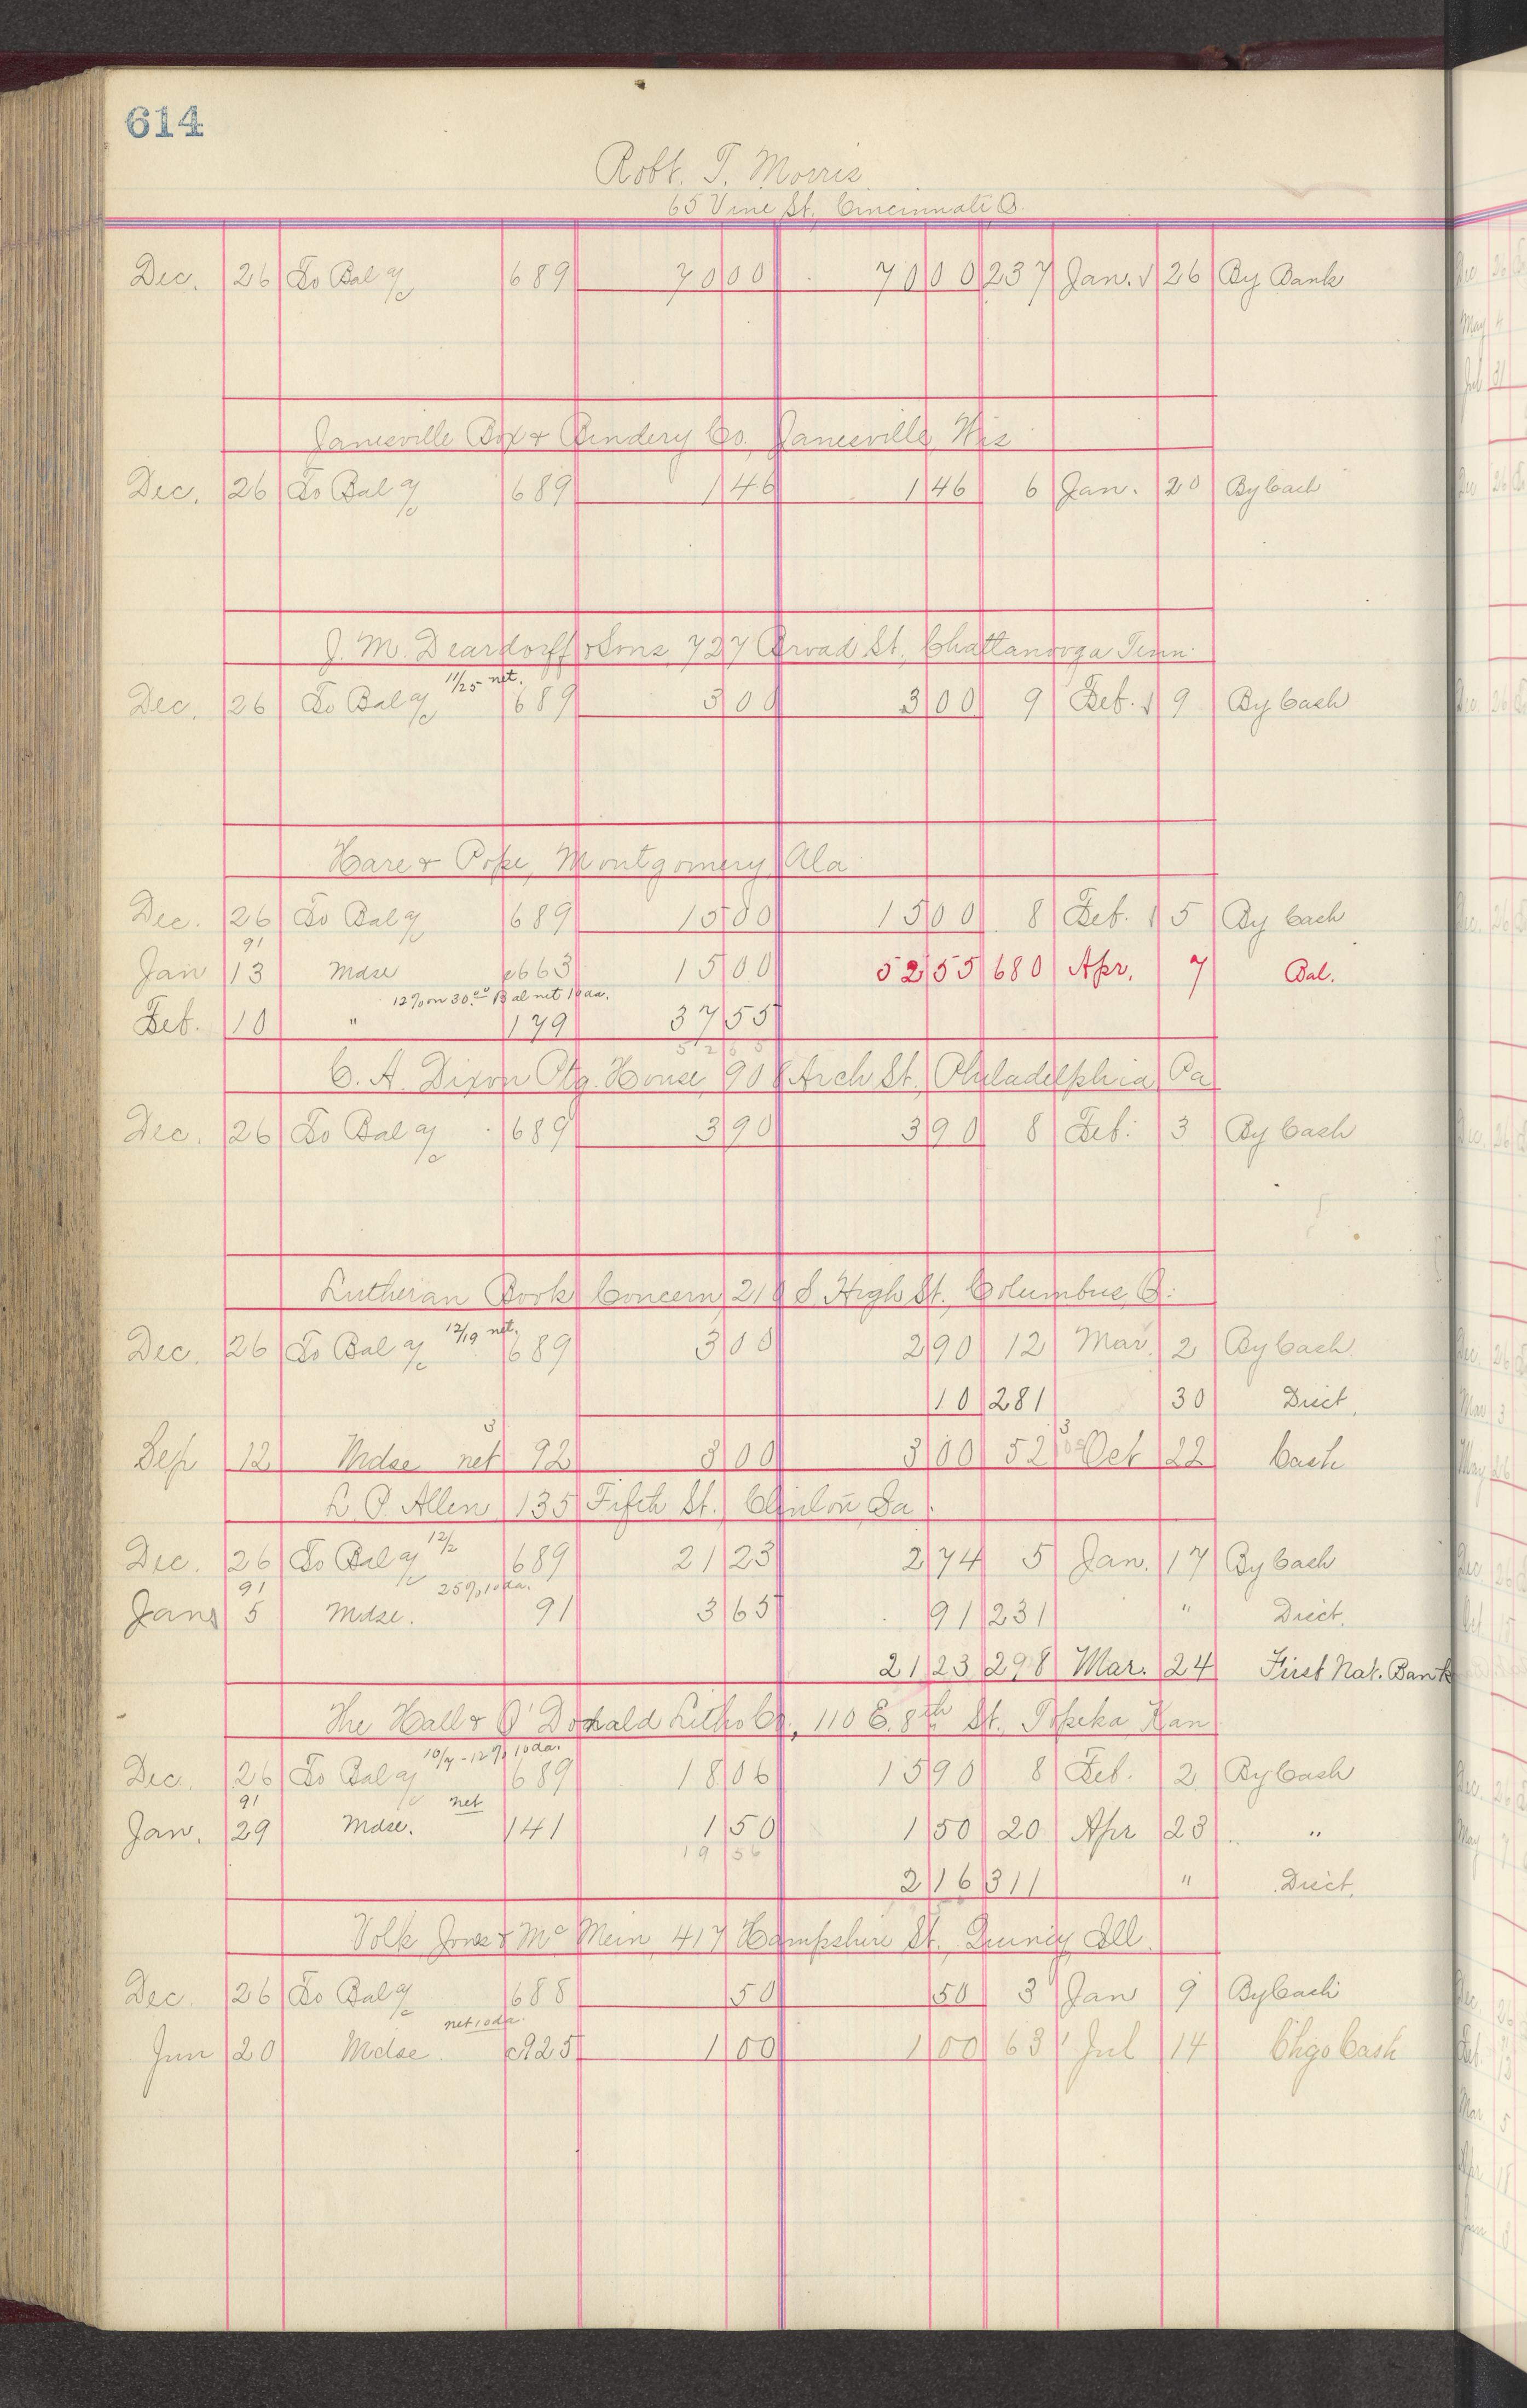 614
Robt. T. Morris
65 Vine St, Cincinnati O.
Dec. 26 To Bal a/c 689 70 00 70 00 237 Jan. 26 By Bank
Janesville Box & Bindery Co. Janesville, Wis
Dec. 26 To Bal a/c 689 1 46 1 46 6 Jan. 20 By Cash
J. M. Deardorff & Sons, 727 Broad St., Chattanooga Tenn.
11/25 net.
Dec. 26 To Bal a/c 689 3 00 3 00 9 Feb. 9 By Cash
Hare & Pope, Montgomery, Ala
Dec. 26 To Bal a/c 689 15 00 15 00 8 Feb. 5 By Cash
91
Jan 13 Mdse c663 15 00 52 55 680 Apr. 7 Bal.
12% on 30.00 Bal net 10 da.
Feb. 10 " 179 37 55
52 55
C. A. Dixon Ptg. House, 908 Arch St., Philadelphia, Pa
Dec. 26 To Bal a/c 689 3 90 3 90 8 Feb. 3 By Cash
Lutheran Book Concern, 210 S. High St., Columbus, O.
12/19 net.
Dec. 26 To Bal a/c 689 3 00 2 90 12 Mar. 2 By Cash
10 281 30 Disct.
Sep 12 Mdse net 92 3 00 3 00 52 Oct 22 Cash
L. P. Allen, 135 Fifth St., Clinton, Ia.
12/2
Dec. 26 To Bal a/c 689 21 23 2 74 5 Jan. 17 By Cash
91 25% 10 da.
Jan 5 Mdse. 91 3 65 91 231 " Disct.
21 23 298 Mar. 24 First Nat. Bank
The Hall & O'Donald Litho Co., 110 E. 8th St., Topeka, Kan
10/7 - 12% 10 da.
Dec. 26 To Bal a/c 689 18 06 15 90 8 Feb. 2 By Cash
91 net
Jan. 29 Mdse. 141 1 50 1 50 20 Apr 23 "
19 56
2 16 311 " Disct.
Volk Jones & McMein, 417 Hampshire St., Quincy, Ill.
Dec. 26 To Bal a/c 688 50 50 3 Jan 9 By Cash
net 10 da.
Jun 20 Mdse. c925 1 00 1 00 63 Jul 14 Chgo Cash